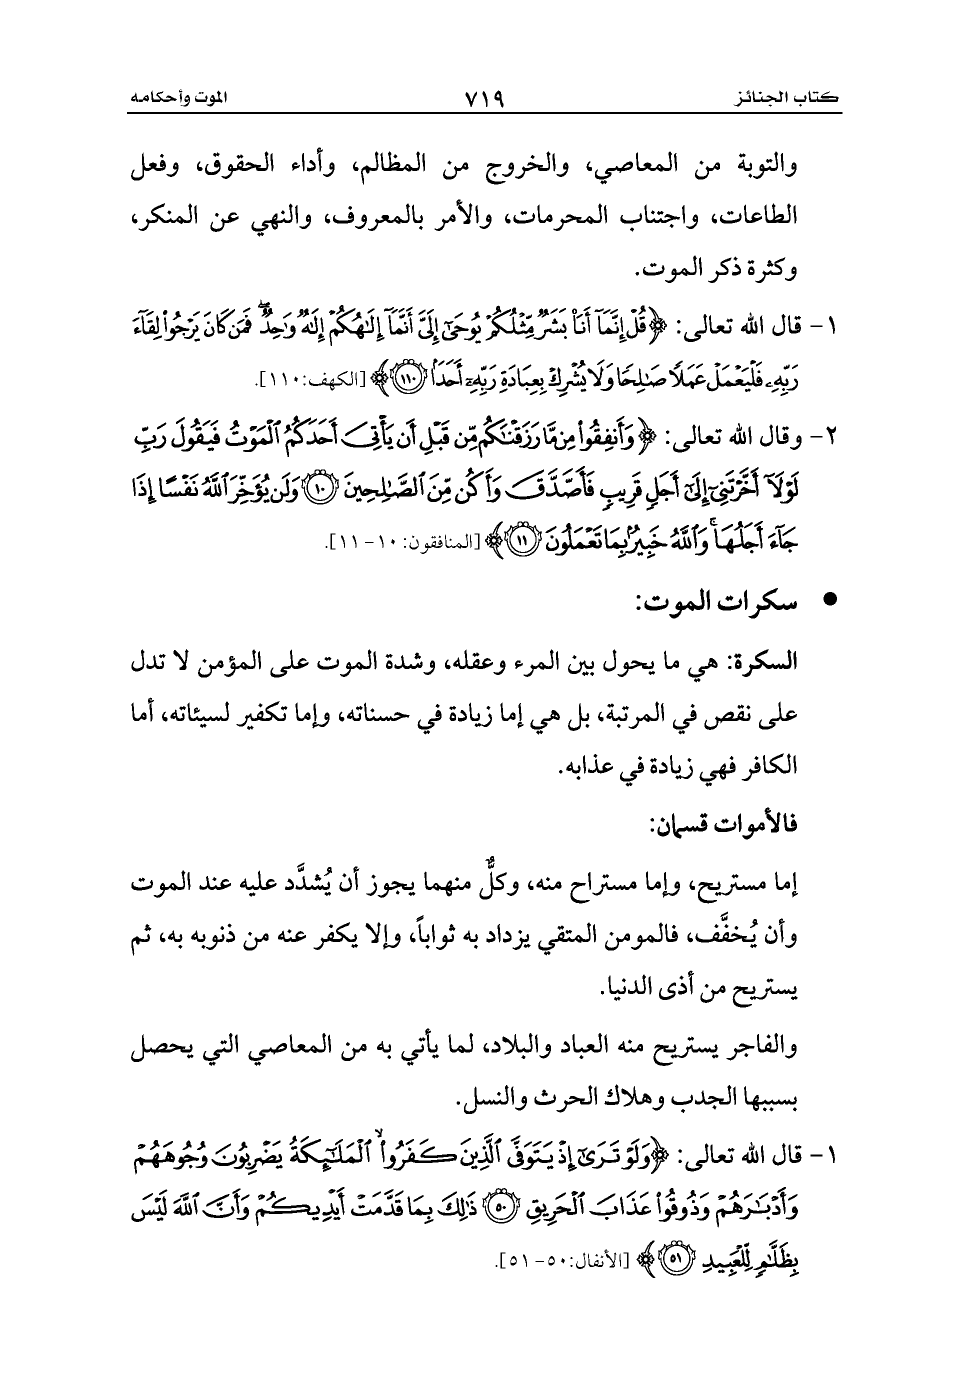 كتاب الجنائز ٧١٩ الموت وأحكامه
والتوبة من المعاصي، والخروج من المظالم، وأداء الحقوق، وفعل
الطاعات، واجتناب المحرمات، والأمر بالمعروف، والنهي عن المنكر،
وكثرة ذكر الموت.
١- قال الله تعالى: ﴿قُلْ إِنَّمَآ أَنَا۠ بَشَرٌ مِّثْلُكُمْ يُوحَىٰٓ إِلَىَّ أَنَّمَآ إِلَٰهُكُمْ إِلَٰهٌ وَٰحِدٌ ۖ فَمَن كَانَ يَرْجُوا۟ لِقَآءَ
رَبِّهِۦ فَلْيَعْمَلْ عَمَلًا صَٰلِحًا وَلَا يُشْرِكْ بِعِبَادَةِ رَبِّهِۦٓ أَحَدًۢا ۝١١٠﴾ [الكهف:١١٠].
٢- وقال الله تعالى: ﴿وَأَنفِقُوا۟ مِن مَّا رَزَقْنَٰكُم مِّن قَبْلِ أَن يَأْتِىَ أَحَدَكُمُ ٱلْمَوْتُ فَيَقُولَ رَبِّ
لَوْلَآ أَخَّرْتَنِىٓ إِلَىٰٓ أَجَلٍ قَرِيبٍ فَأَصَّدَّقَ وَأَكُن مِّنَ ٱلصَّٰلِحِينَ ۝١٠ وَلَن يُؤَخِّرَ ٱللَّهُ نَفْسًا إِذَا
جَآءَ أَجَلُهَا ۚ وَٱللَّهُ خَبِيرٌۢ بِمَا تَعْمَلُونَ ۝١١﴾ [المنافقون: ١٠-١١].
● سكرات الموت:
السكرة: هي ما يحول بين المرء وعقله، وشدة الموت على المؤمن لا تدل
على نقص في المرتبة، بل هي إما زيادة في حسناته، وإما تكفير لسيئاته، أما
الكافر فهي زيادة في عذابه.
فالأموات قسمان:
إما مستريح، وإما مستراح منه، وكلٌّ منهما يجوز أن يُشدَّد عليه عند الموت
وأن يُخفَّف، فالمومن المتقي يزداد به ثواباً، وإلا يكفر عنه من ذنوبه به، ثم
يستريح من أذى الدنيا.
والفاجر يستريح منه العباد والبلاد، لما يأتي به من المعاصي التي يحصل
بسببها الجدب وهلاك الحرث والنسل.
١- قال الله تعالى: ﴿وَلَوْ تَرَىٰٓ إِذْ يَتَوَفَّى ٱلَّذِينَ كَفَرُوا۟ ۙ ٱلْمَلَٰٓئِكَةُ يَضْرِبُونَ وُجُوهَهُمْ
وَأَدْبَٰرَهُمْ وَذُوقُوا۟ عَذَابَ ٱلْحَرِيقِ ۝٥٠ ذَٰلِكَ بِمَا قَدَّمَتْ أَيْدِيكُمْ وَأَنَّ ٱللَّهَ لَيْسَ
بِظَلَّٰمٍ لِّلْعَبِيدِ ۝٥١﴾ [الأنفال:٥٠-٥١].